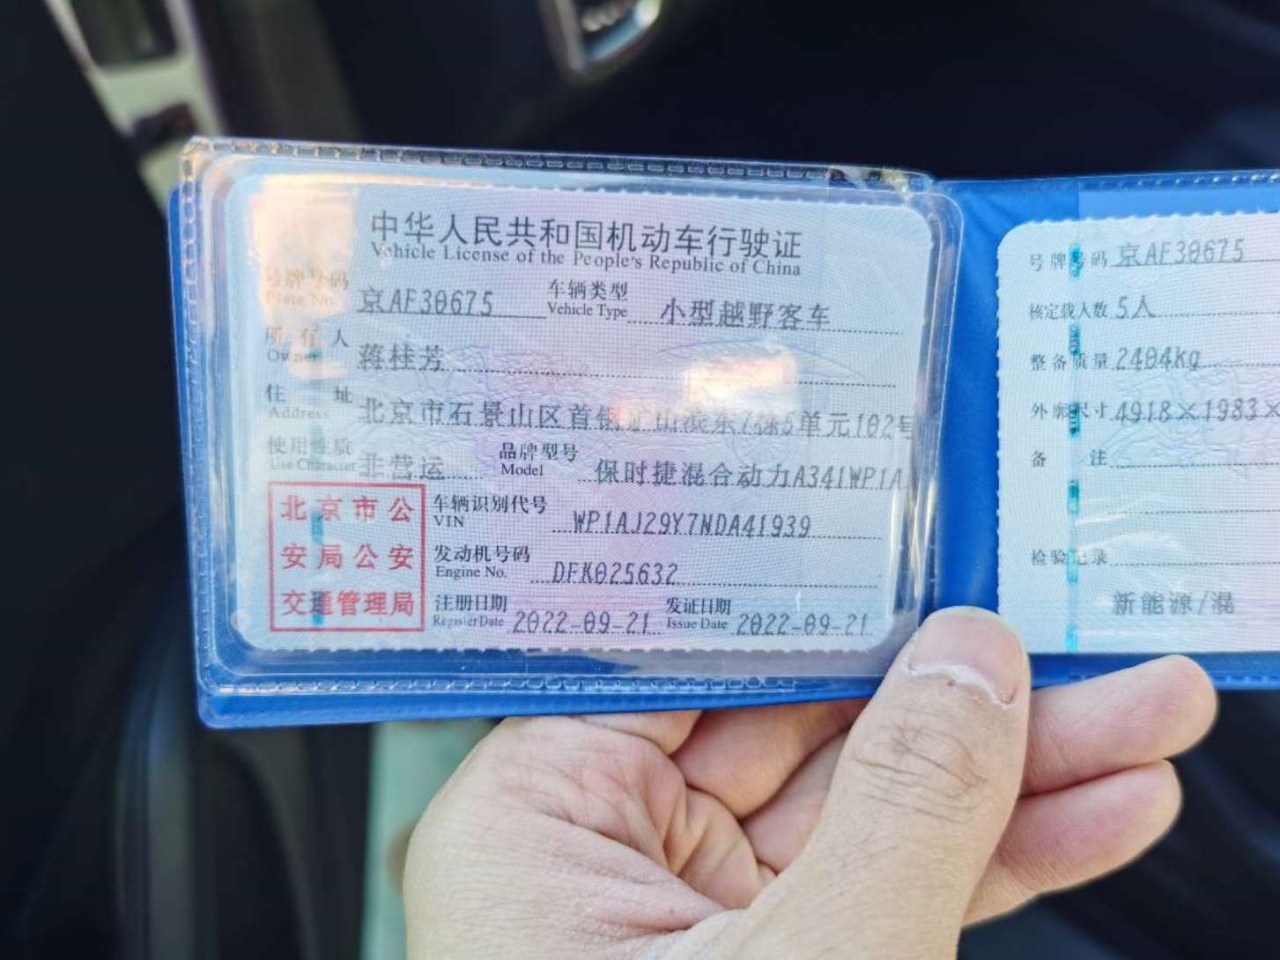 中华人民共和国机动车行驶证
Vehicle License of the People's Republic of China
号牌号码 京AF30675 车辆类型 小型越野客车
Plate No. Vehicle Type
所有人 蒋桂芳
Owner
住址 北京市石景山区首钢矿山滨东7栋5单元102号
Address
使用性质 非营运 品牌型号 保时捷混合动力A341WP1A
Use Character Model
北京市公
安局公安
交通管理局
车辆识别代号 WP1AJ29Y7NDA41939
VIN
发动机号码 DFK025632
Engine No.
注册日期 2022-09-21 发证日期 2022-09-21
Register Date Issue Date
号牌号码 京AF30675
核定载人数 5人
整备质量 2404kg
外廓尺寸 4918×1983×
备注
检验记录
新能源/混